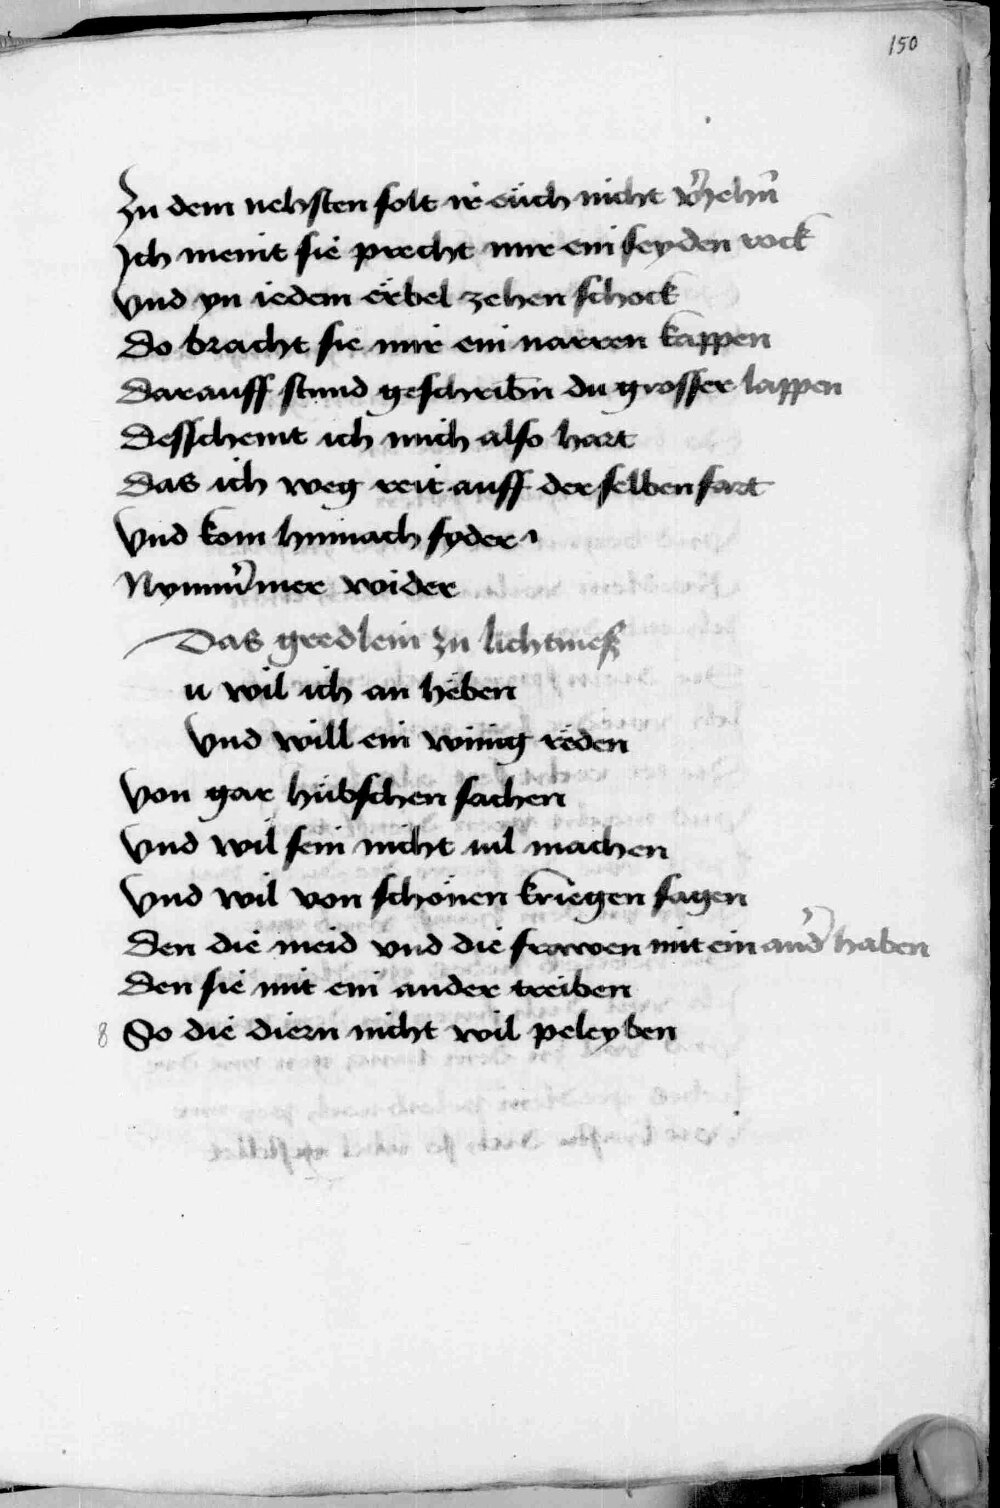 150
Zu dem nehsten solt ir eüch nicht v̄sehn̄
Ich meint sie precht mir ein seyden rock
Vnd yn iedem erbel zehen schock
Do bracht sie mir ein narren kappen
Darauff stund geschribn̄ du grosser lappen
Desschemt ich mich also hart
Das ich weg reit auff der selben fart
Vnd kom hinnach syder
Nymm̄mer wider
Das gredlein zu lichtmeß
u wil ich an heben
Vnd will ein winig reden
Von gar hübschen sachen
Vnd wil sein nicht uil machen
Vnd wil von schönen kriegen sagen
Den die meid vnd die frawen mit ein and̄ haben
Den sie mit ein ander treiben
8 So die diern nicht wil peleyben